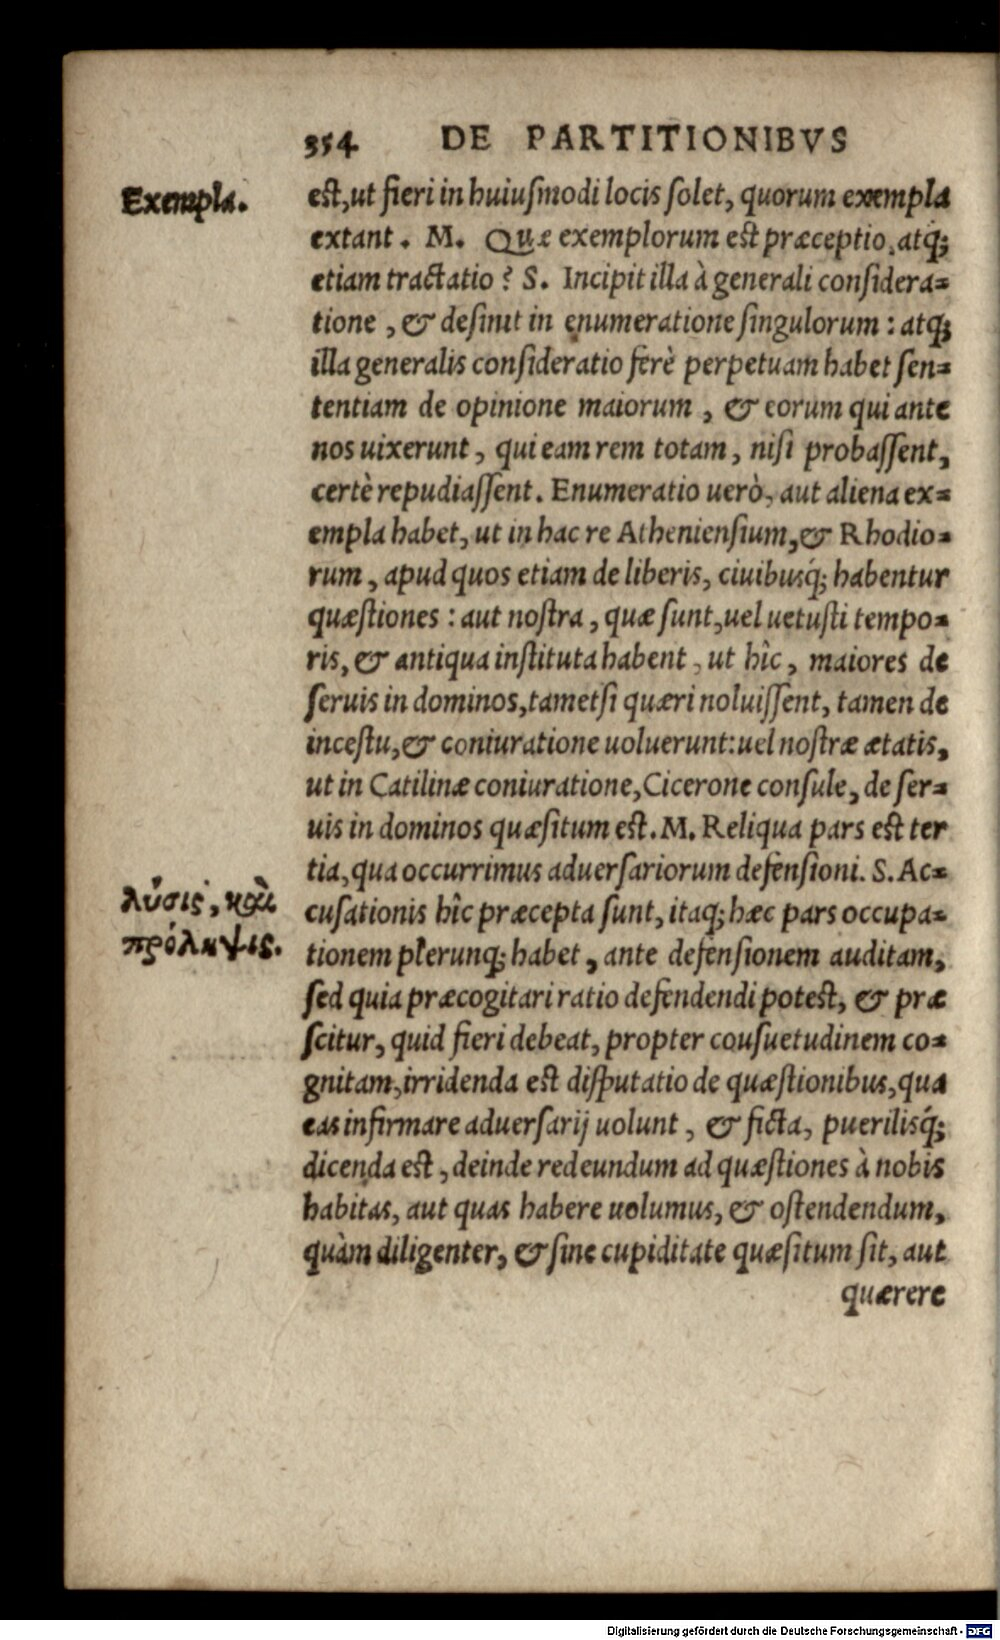 354 DE PARTITIONIBVS
Exempla.
est, ut fieri in huiusmodi locis solet, quorum exempla
extant. M. Quæ exemplorum est præceptio, atq;
etiam tractatio? S. Incipit illa à generali considera=
tione, & desinit in enumeratione singulorum: atq;
illa generalis consideratio ferè perpetuam habet sen=
tentiam de opinione maiorum, & eorum qui ante
nos uixerunt, qui eam rem totam, nisi probassent,
certè repudiassent. Enumeratio uerò, aut aliena ex=
empla habet, ut in hac re Atheniensium, & Rhodio=
rum, apud quos etiam de liberis, ciuibusq́; habentur
quæstiones: aut nostra, quæ sunt, uel uetusti tempo=
ris, & antiqua instituta habent, ut hîc, maiores de
seruis in dominos, tametsi quæri noluissent, tamen de
incestu, & coniuratione uoluerunt: uel nostræ ætatis,
ut in Catilinæ coniuratione, Cicerone consule, de ser=
uis in dominos quæsitum est. M. Reliqua pars est ter
tia, qua occurrimus aduersariorum defensioni. S. Ac=
λύσις, καὶ
πρόληψις.
cusationis hîc præcepta sunt, itaq; hæc pars occupa=
tionem plerunq; habet, ante defensionem auditam,
sed quia præcogitari ratio defendendi potest, & præ
scitur, quid fieri debeat, propter cousuetudinem co=
gnitam, irridenda est disputatio de quæstionibus, qua
eas infirmare aduersarij uolunt, & ficta, puerilisq́;
dicenda est, deinde redeundum ad quæstiones à nobis
habitas, aut quas habere uolumus, & ostendendum,
quàm diligenter, & sine cupiditate quæsitum sit, aut
quærere
Digitalisierung gefördert durch die Deutsche Forschungsgemeinschaft - DFG